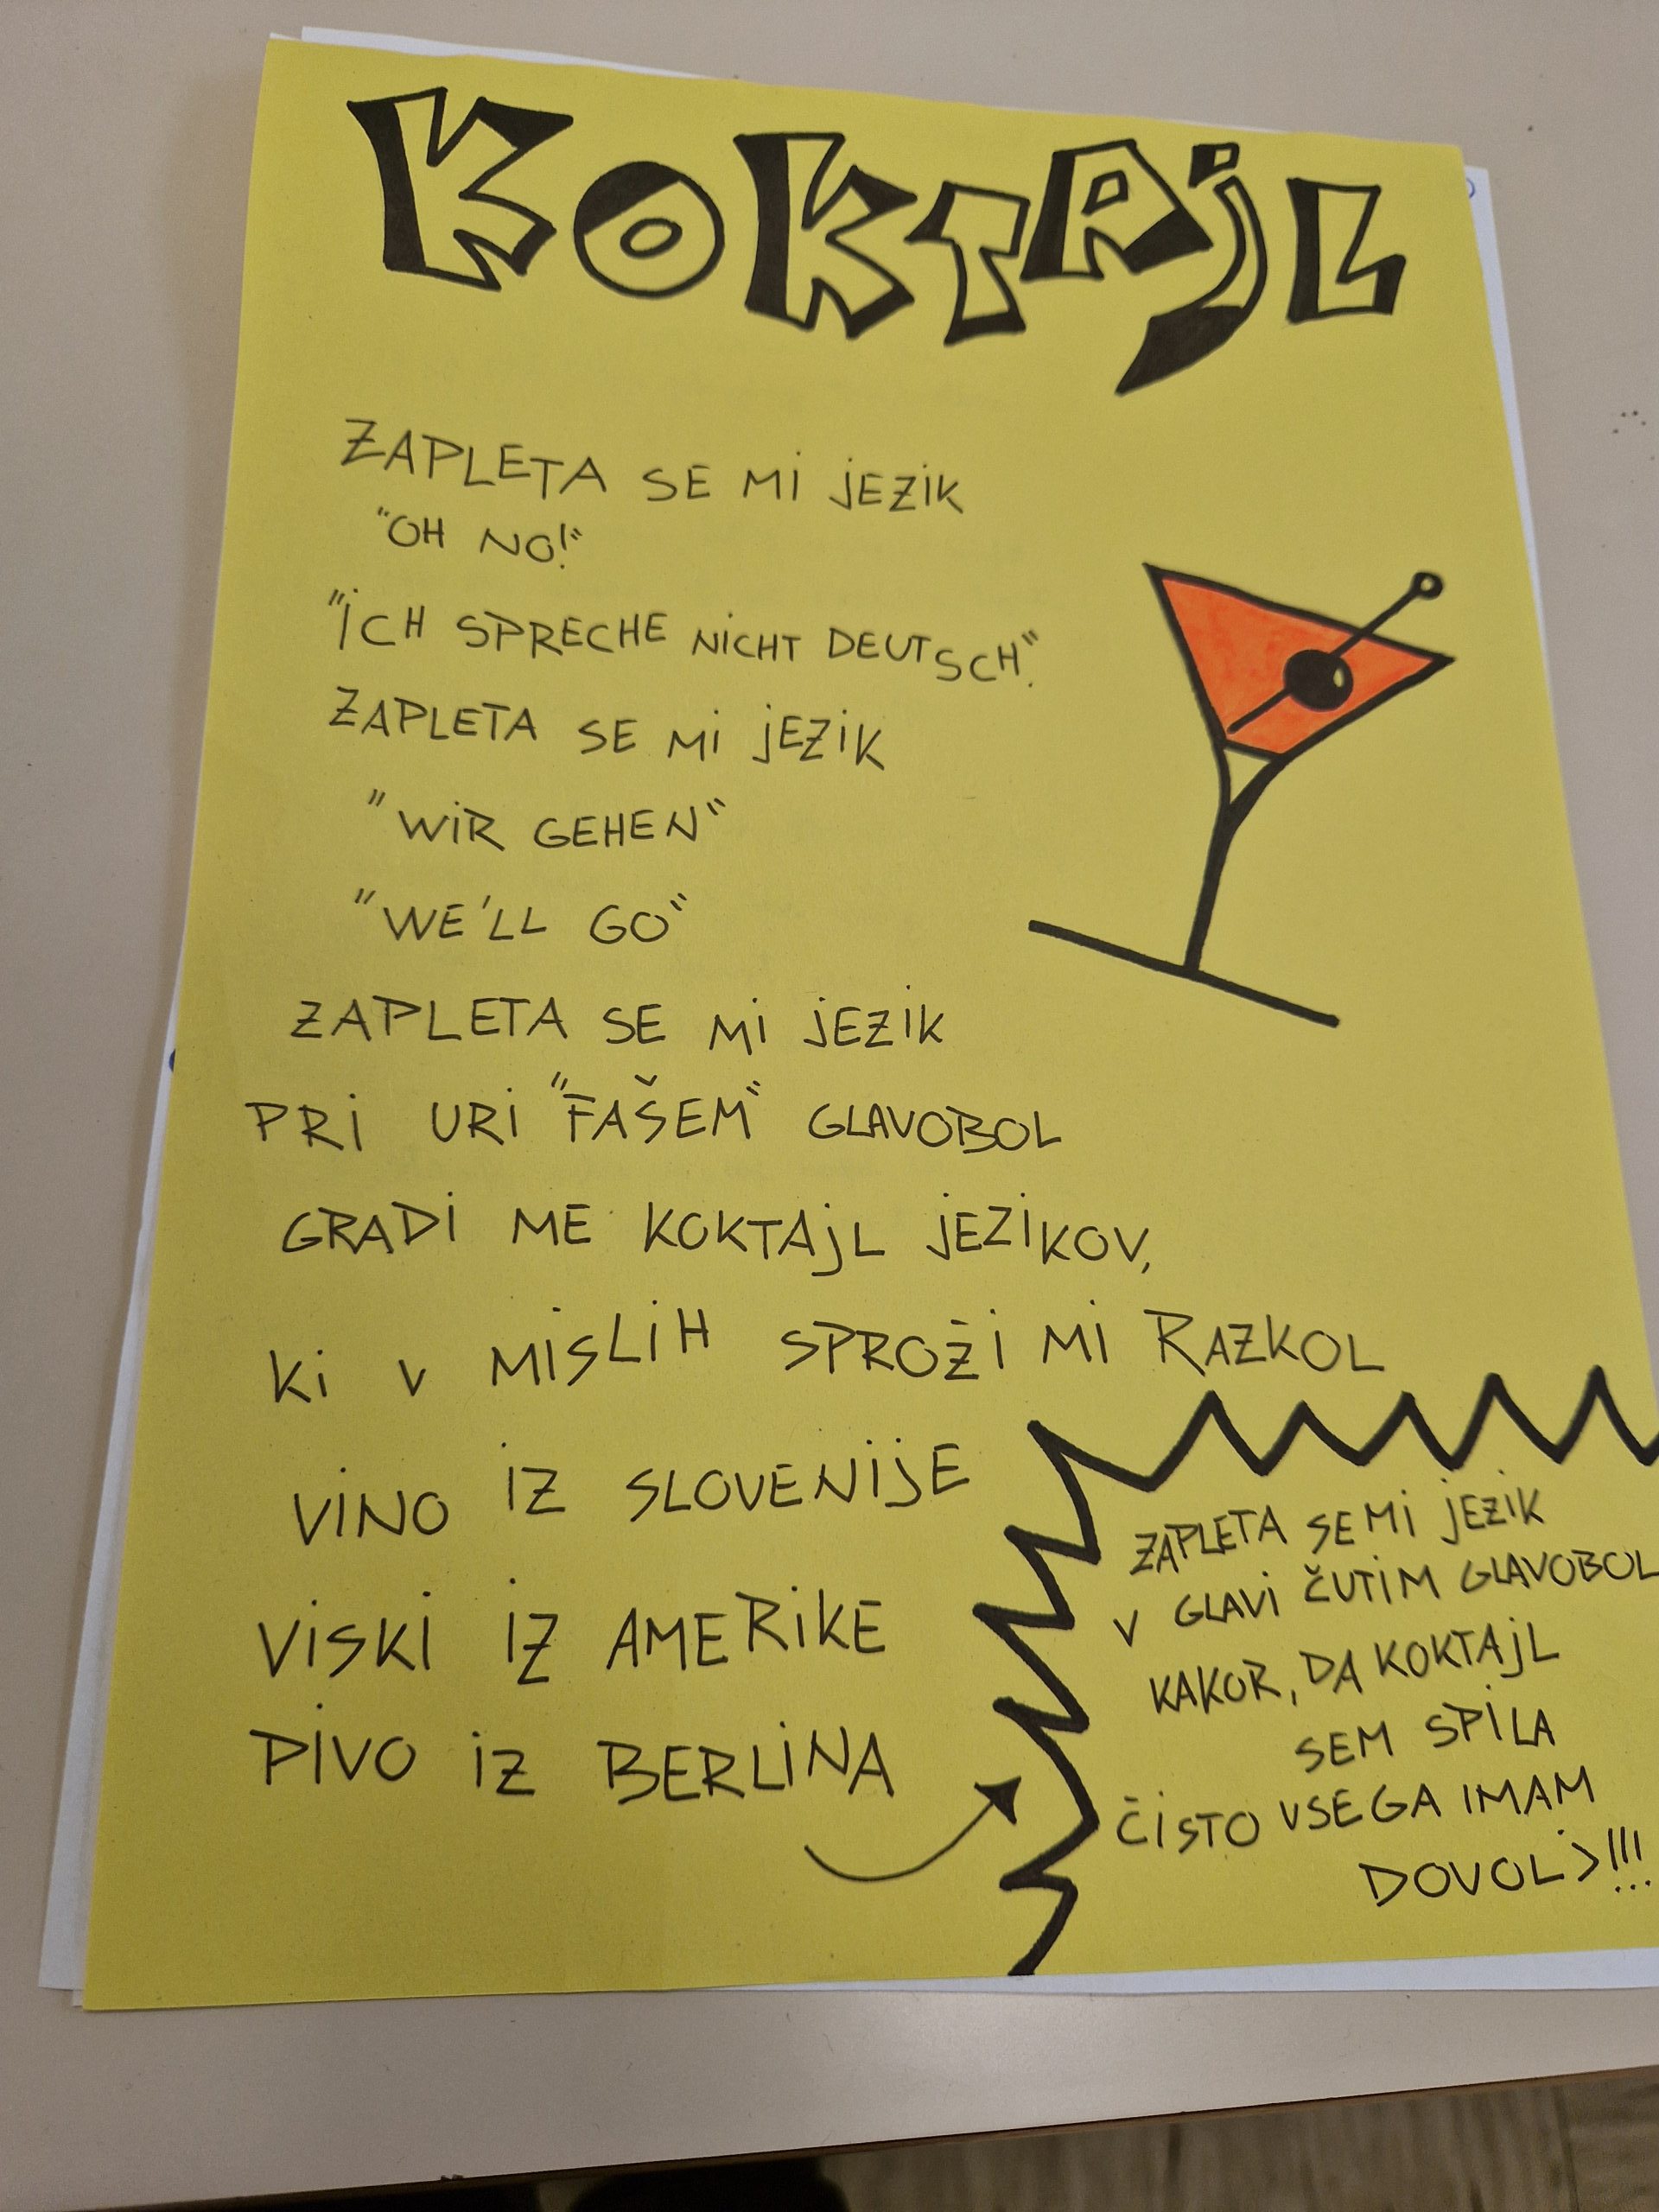 KOKTAJL
ZAPLETA SE MI JEZIK
"OH NO!"
"ICH SPRECHE NICHT DEUTSCH."
ZAPLETA SE MI JEZIK
"WIR GEHEN"
"WE'LL GO"
ZAPLETA SE MI JEZIK
PRI URI "FAŠEM" GLAVOBOL
GRADI ME KOKTAJL JEZIKOV,
KI V MISLIH SPROŽI MI RAZKOL
VINO IZ SLOVENIJE
VISKI IZ AMERIKE
PIVO IZ BERLINA
ZAPLETA SE MI JEZIK
V GLAVI ČUTIM GLAVOBOL
KAKOR, DA KOKTAJL
SEM SPILA
ČISTO VSEGA IMAM
DOVOLJ!!!